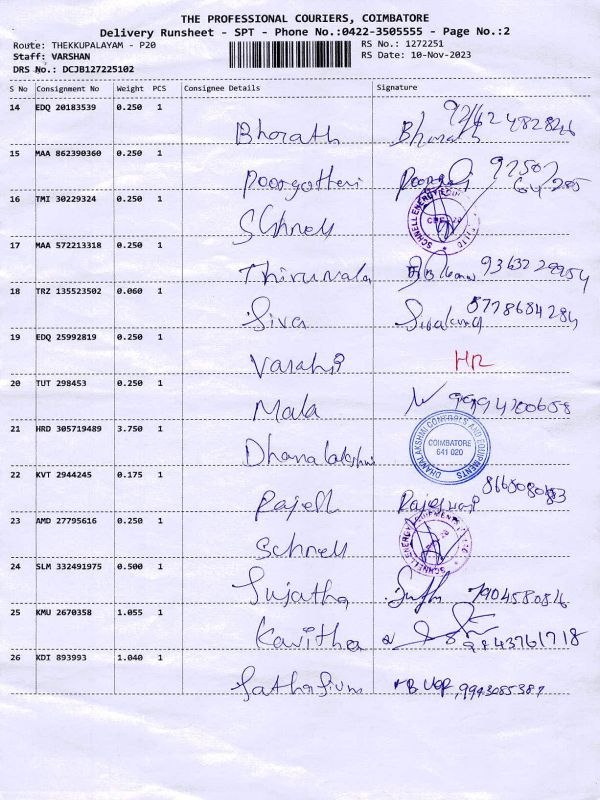 THE PROFESSIONAL COURIERS, COIMBATORE
Delivery Runsheet - SPT - Phone No.:0422-3505555 - Page No.:2
Route: THEKKUPALAYAM - P20 RS No.: 1272251
Staff: VARSHAN RS Date: 10-Nov-2023
DRS No.: DCJB127225102
S No Consignment No Weight PCS Consignee Details Signature
14 EDQ 20183539 0.250 1
Bharath
15 MAA 862390360 0.250 1
Poorgothai
16 TMI 30229324 0.250 1
Schnell
SCHNELL ENERGY
17 MAA 572213318 0.250 1
Thirumala 9363229954
18 TRZ 135523502 0.060 1
Siva 8778684284
19 EDQ 25992819 0.250 1
Varahi HR
20 TUT 298453 0.250 1
Mala 9994200658
21 HRD 305719489 3.750 1
Dhanalakshmi
DHANALAKSHMI CONTROLS AND EQUIPMENTS
COIMBATORE
641 020
22 KVT 2944245 0.175 1
Rajesh
23 AMD 27795616 0.250 1
Schnell
SCHNELL ENERGY EQUIPMENTS
24 SLM 332491975 0.500 1
Sujatha 7904580816
25 KMU 2670358 1.055 1
Kavitha 9843761718
26 KDI 893993 1.040 1
9943085387